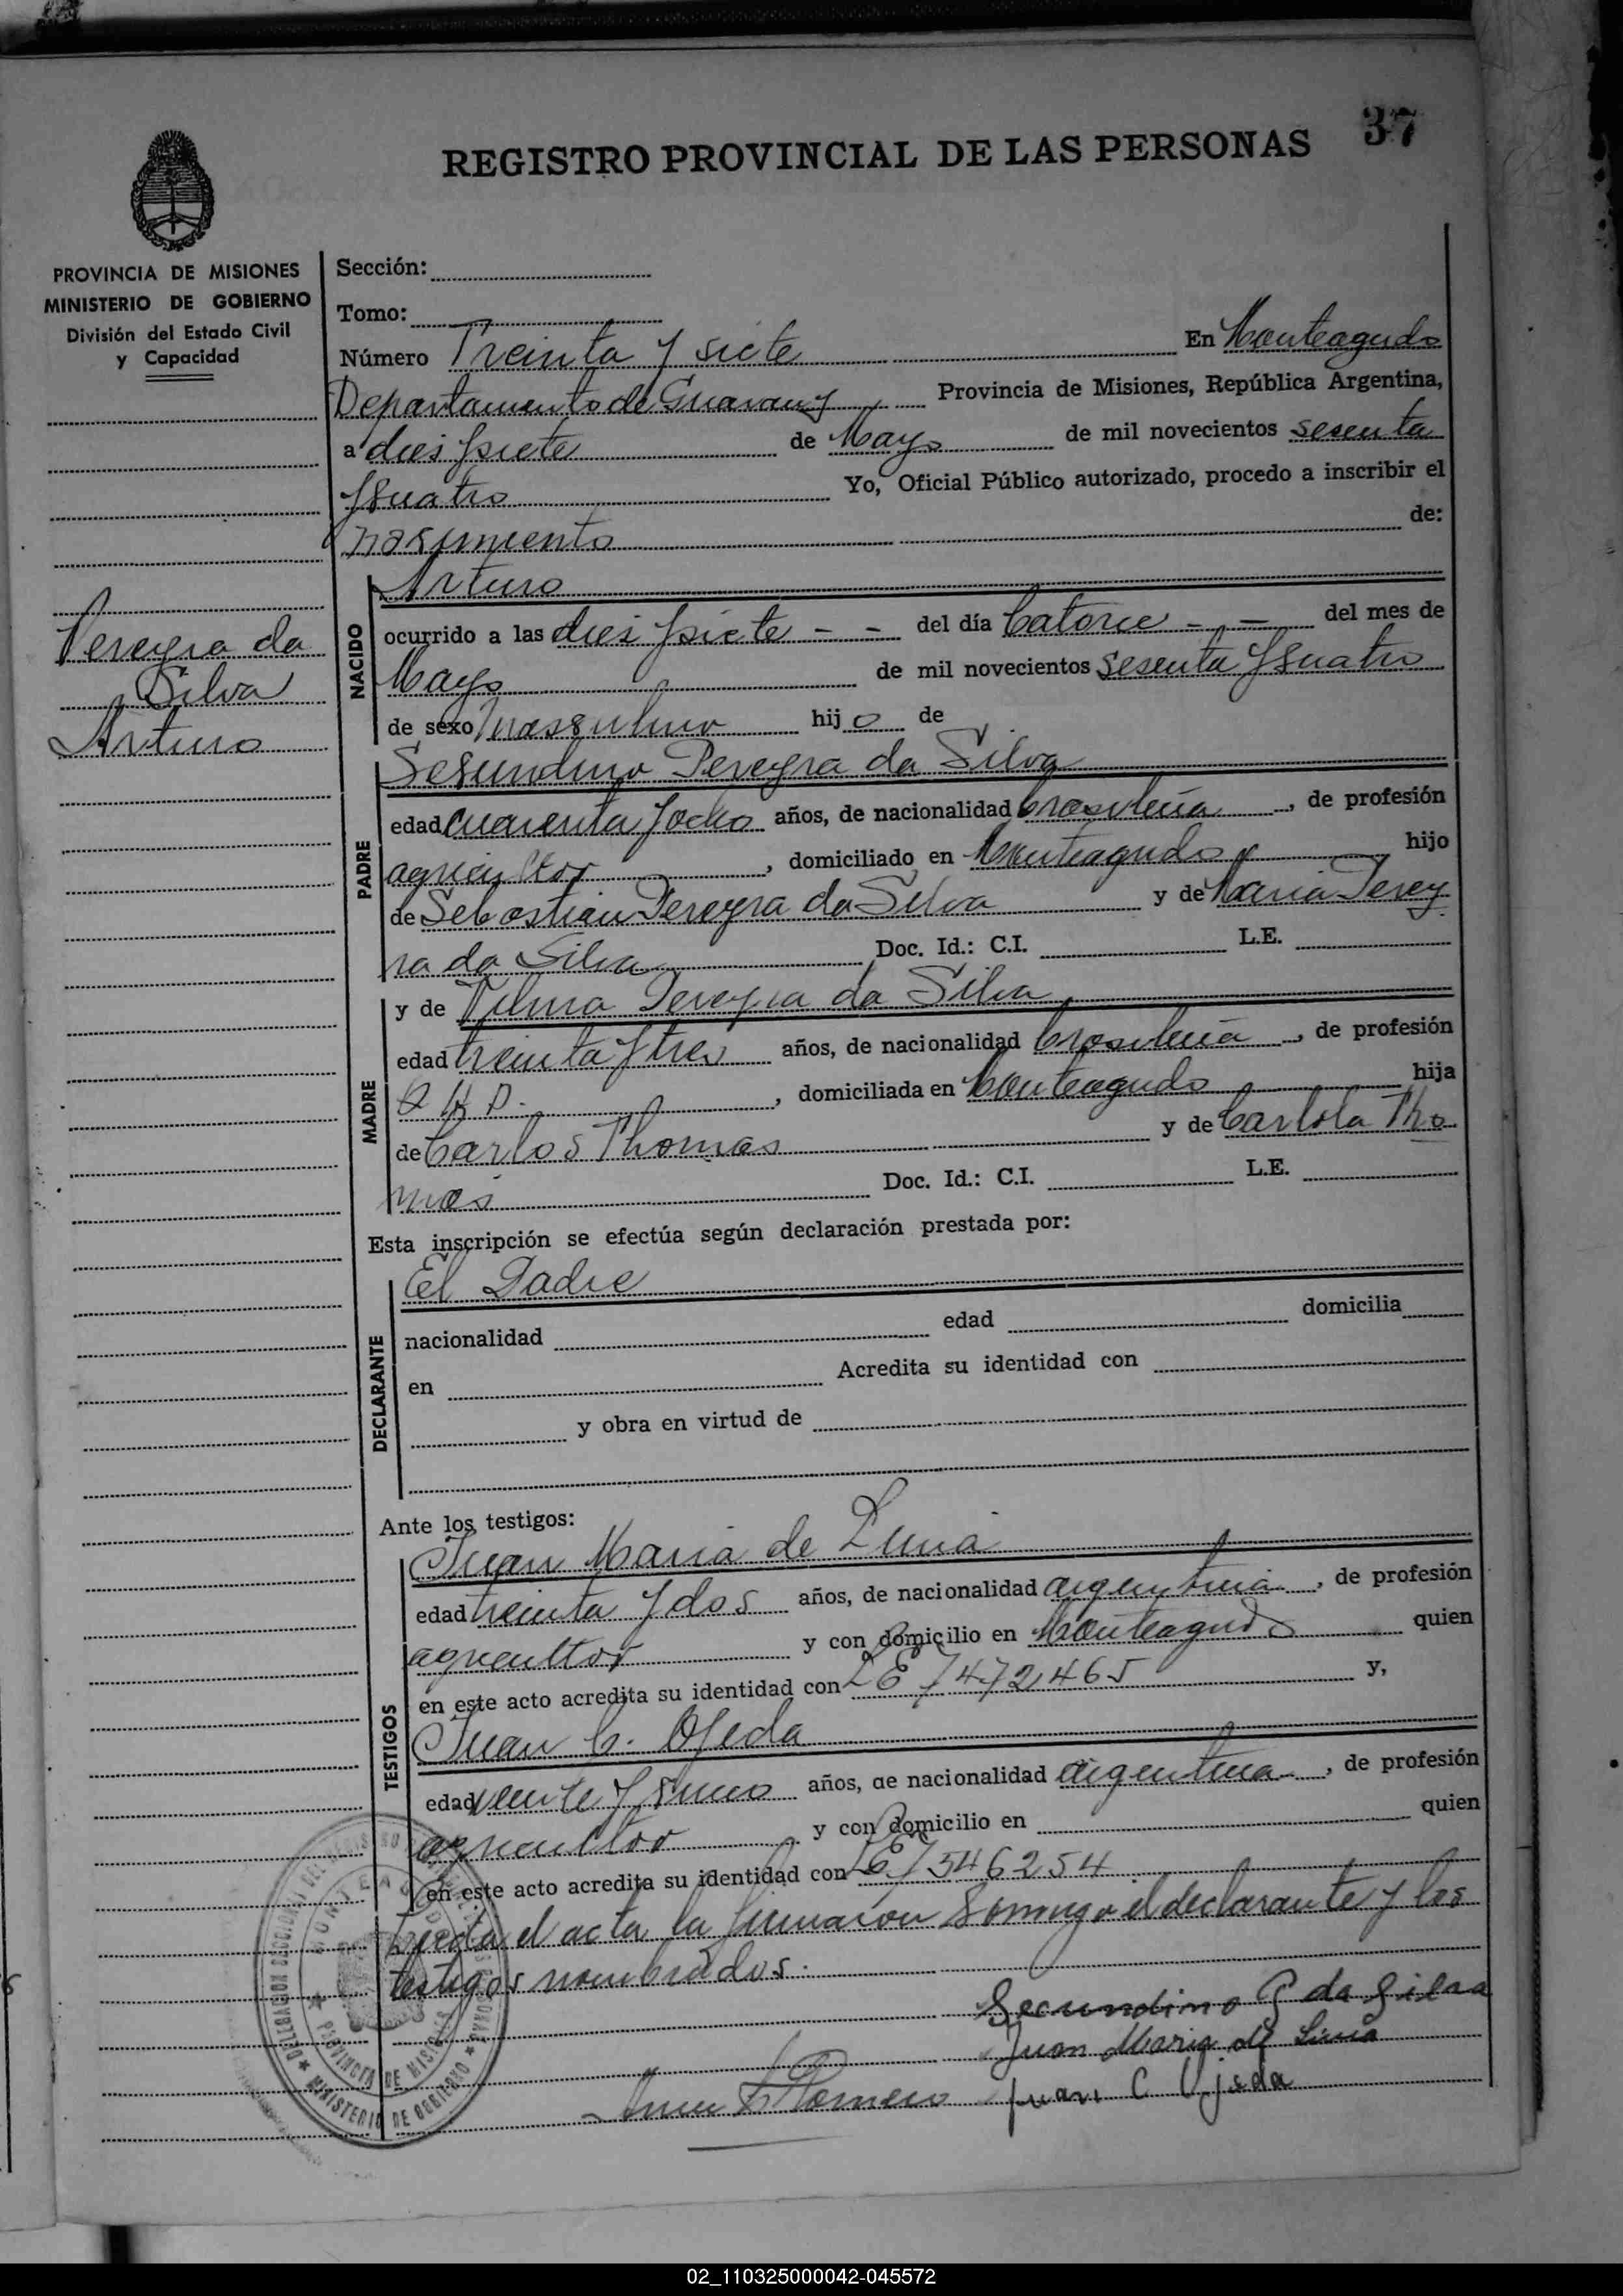 37
REGISTRO PROVINCIAL DE LAS PERSONAS
PROVINCIA DE MISIONES
MINISTERIO DE GOBIERNO
División del Estado Civil
y Capacidad
Pereyra da
Silva
Arturo
Sección:
Tomo:
Número Treinta y siete En Monteagudo
Departamento de Guarany Provincia de Misiones, República Argentina,
a diesysiete de Mayo de mil novecientos sesenta
ysuatro Yo, Oficial Público autorizado, procedo a inscribir el
nasimiento de:
NACIDO
Arturo
ocurrido a las diesysiete - - del día Catorce - - del mes de
Mayo de mil novecientos sesenta ysuatro
de sexo massulino hijo de
PADRE
Segundino Pereyra da Silva
edad cuarenta yocho años, de nacionalidad brasileña, de profesión
agricultor, domiciliado en Monteagudo hijo
de Sebastian Pereyra da Silva y de Maria Perey
ra da Silva Doc. Id.: C.I. L.E.
MADRE
y de Vilma Pereyra da Silva
edad treinta ytres años, de nacionalidad brasileña, de profesión
Q H D., domiciliada en Monteagudo hija
de Carlos Thomas y de Carlota Tho
mas Doc. Id.: C.I. L.E.
Esta inscripción se efectúa según declaración prestada por:
DECLARANTE
El Padre
nacionalidad edad domicilia
en Acredita su identidad con
y obra en virtud de
Ante los testigos:
TESTIGOS
Juan Maria de Lima
edad treinta ydos años, de nacionalidad argentina, de profesión
agricultor y con domicilio en Monteagudo quien
en este acto acredita su identidad con LE 7472465 y,
Juan C. Ojeda
edad veinte y sinco años, de nacionalidad argentina, de profesión
agricultor y con domicilio en quien
en este acto acredita su identidad con LE 7546254
Leida el acta la firmaron Conmigo el declarante y los
testigos nombrados.
Secundino P da Silva
Juan Maria de Lima
Romero Juan C Ojeda
MONTEAGUDO
PROVINCIA DE MISIONES
MINISTERIO DE GOBIERNO
02_110325000042-045572